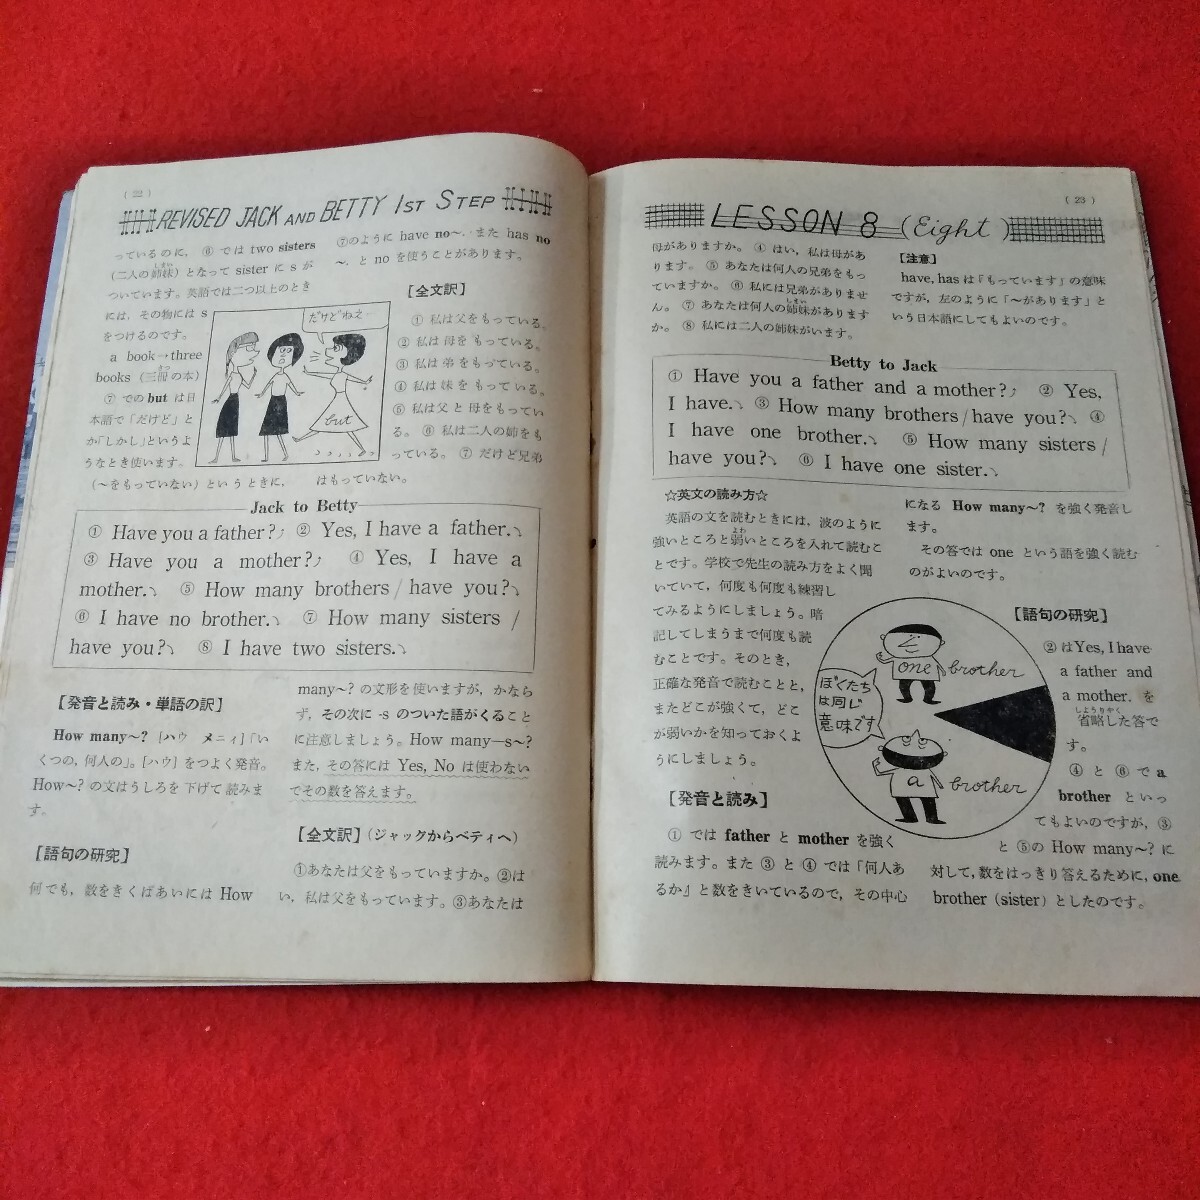 ( 22 )
REVISED JACK AND BETTY 1ST STEP
っているのに, ⑥ では two sisters
(二人の姉妹) となって sister に s が
ついています。英語では二つ以上のとき
には, その物には s
をつけるのです。
a book→three
books (三冊の本)
⑦ での but は日
本語で「だけど」と
か「しかし」というよ
うなとき使います。
(〜をもっていない) というときに,
⑦のように have no〜. また has no
〜. と no を使うことがあります。
【全文訳】
① 私は父をもっている。
② 私は母をもっている。
③ 私は弟をもっている。
④ 私は妹をもっている。
⑤ 私は父と母をもってい
る。 ⑥ 私は二人の姉をも
っている。 ⑦ だけど兄弟
はもっていない。
だけどねえ…
but
Jack to Betty
① Have you a father? ② Yes, I have a father.
③ Have you a mother? ④ Yes, I have a
mother. ⑤ How many brothers / have you?
⑥ I have no brother. ⑦ How many sisters /
have you? ⑧ I have two sisters.
【発音と読み・単語の訳】
How many〜? [ハウ メニィ]「い
くつの, 何人の」。[ハウ] をつよく発音。
How〜? の文はうしろを下げて読みま
す。
【語句の研究】
何でも, 数をきくばあいには How
many〜? の文形を使いますが, かなら
ず, その次に -s のついた語がくること
に注意しましょう。How many—s〜?
また, その答には Yes, No は使わない
でその数を答えます。
【全文訳】(ジャックからベティへ)
①あなたは父をもっていますか。②は
い, 私は父をもっています。③あなたは
( 23 )
LESSON 8 (Eight)
母がありますか。 ④ はい, 私は母があ
ります。 ⑤ あなたは何人の兄弟をもっ
ていますか。 ⑥ 私には兄弟がありませ
ん。 ⑦ あなたは何人の姉妹があります
か。 ⑧ 私には二人の姉妹がいます。
【注意】
have, has は「もっています」の意味
ですが, 左のように「〜があります」と
いう日本語にしてもよいのです。
Betty to Jack
① Have you a father and a mother? ② Yes,
I have. ③ How many brothers / have you? ④
I have one brother. ⑤ How many sisters /
have you? ⑥ I have one sister.
☆英文の読み方☆
英語の文を読むときには, 波のように
強いところと弱いところを入れて読むこ
とです。学校で先生の読み方をよく聞
いていて, 何度も何度も練習し
てみるようにしましょう。暗
記してしまうまで何度も読
むことです。そのとき,
正確な発音で読むことと,
またどこが強くて, どこ
が弱いかを知っておくよ
うにしましょう。
【発音と読み】
① では father と mother を強く
読みます。また ③ と ④ では「何人あ
るか」と数をきいているので, その中心
になる How many〜? を強く発音し
ます。
その答では one という語を強く読む
のがよいのです。
one brother
ぼくたち
は同じ
意味です
a brother
【語句の研究】
②は Yes, I have
a father and
a mother. を
省略した答で
す。
④ と ⑥ で a
brother といっ
てもよいのですが, ③
と ⑤の How many〜? に
対して, 数をはっきり答えるために, one
brother (sister) としたのです。